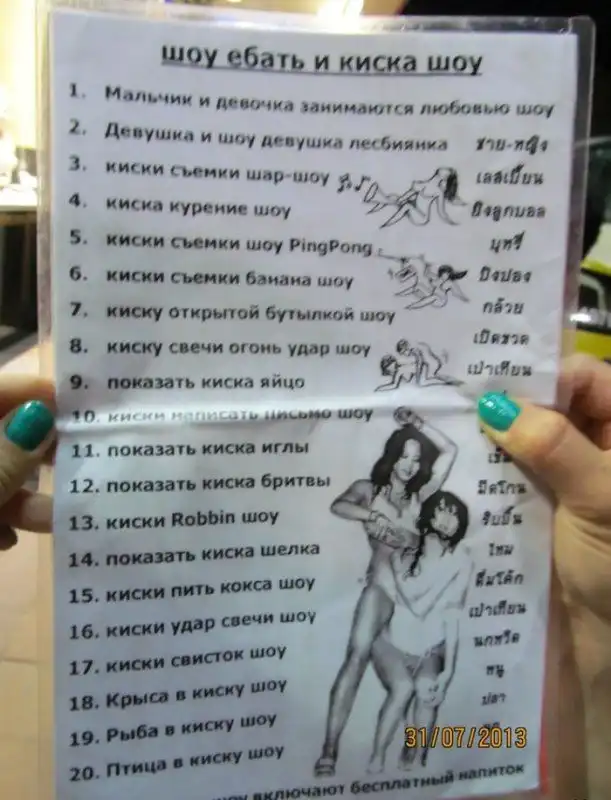 шоу ебать и киска шоу
1. Мальчик и девочка занимаются любовью шоу
2. Девушка и шоу девушка лесбиянка ชาย-หญิง
3. киски съемки шар-шоу เลสเบี้ยน
4. киска курение шоу ยิงลูกบอล
5. киски съемки шоу PingPong บุหรี่
6. киски съемки банана шоу ปิงปอง
7. киску открытой бутылкой шоу กล้วย
8. киску свечи огонь удар шоу เปิดขวด
9. показать киска яйцо เป่าเทียน
10. киски написать письмо шоу
11. показать киска иглы
12. показать киска бритвы มีดโกน
13. киски Robbin шоу ริบบิ้น
14. показать киска шелка ไหม
15. киски пить кокса шоу ดื่มโค้ก
16. киски удар свечи шоу เป่าเทียน
17. киски свисток шоу นกหวีด
18. Крыса в киску шоу หนู
19. Рыба в киску шоу ปลา
20. Птица в киску шоу
31/07/2013
шоу включают бесплатный напиток